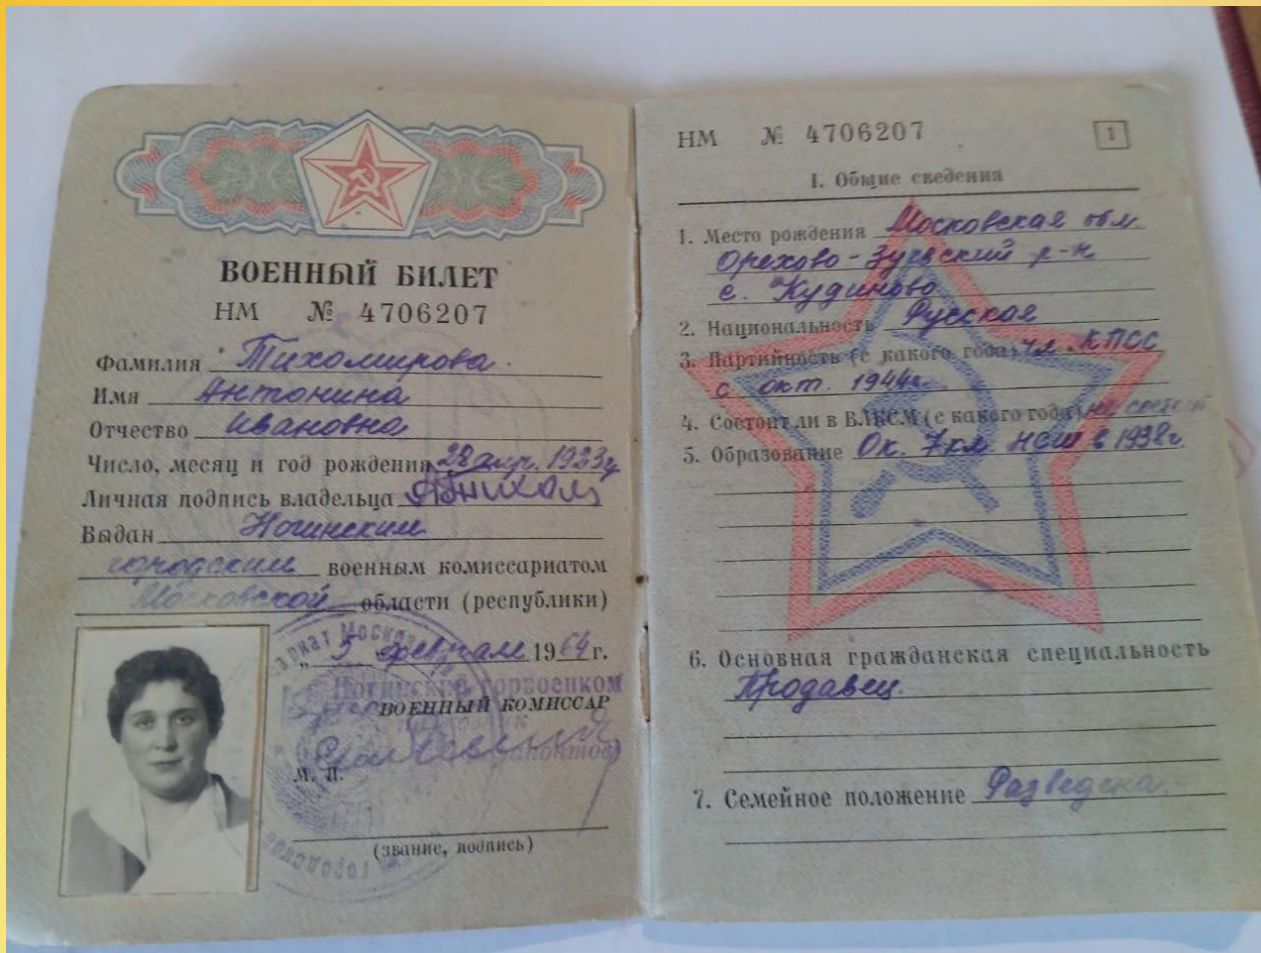 ВОЕННЫЙ БИЛЕТ
НМ № 4706207
Фамилия Тихомирова
Имя Антонина
Отчество Ивановна
Число, месяц и год рождения 28 апр. 1923г
Личная подпись владельца
Выдан Ногинским
городским военным комиссариатом
Московской области (республики)
„5 февраля 1964 г.
Ногинский горвоенком
ВОЕННЫЙ КОМИССАР
М. П.
(звание, подпись)
НМ № 4706207
1
I. Общие сведения
1. Место рождения Московская обл.
Орехово-Зуевский р-н
с. Кудиново
2. Национальность Русская
3. Партийность (с какого года) чл. КПСС
с окт. 1944г.
4. Состоит ли в ВЛКСМ (с какого года) не состоит
5. Образование Ок. 7 кл. НСШ в 1938г.
6. Основная гражданская специальность
Продавец.
7. Семейное положение Разведена.